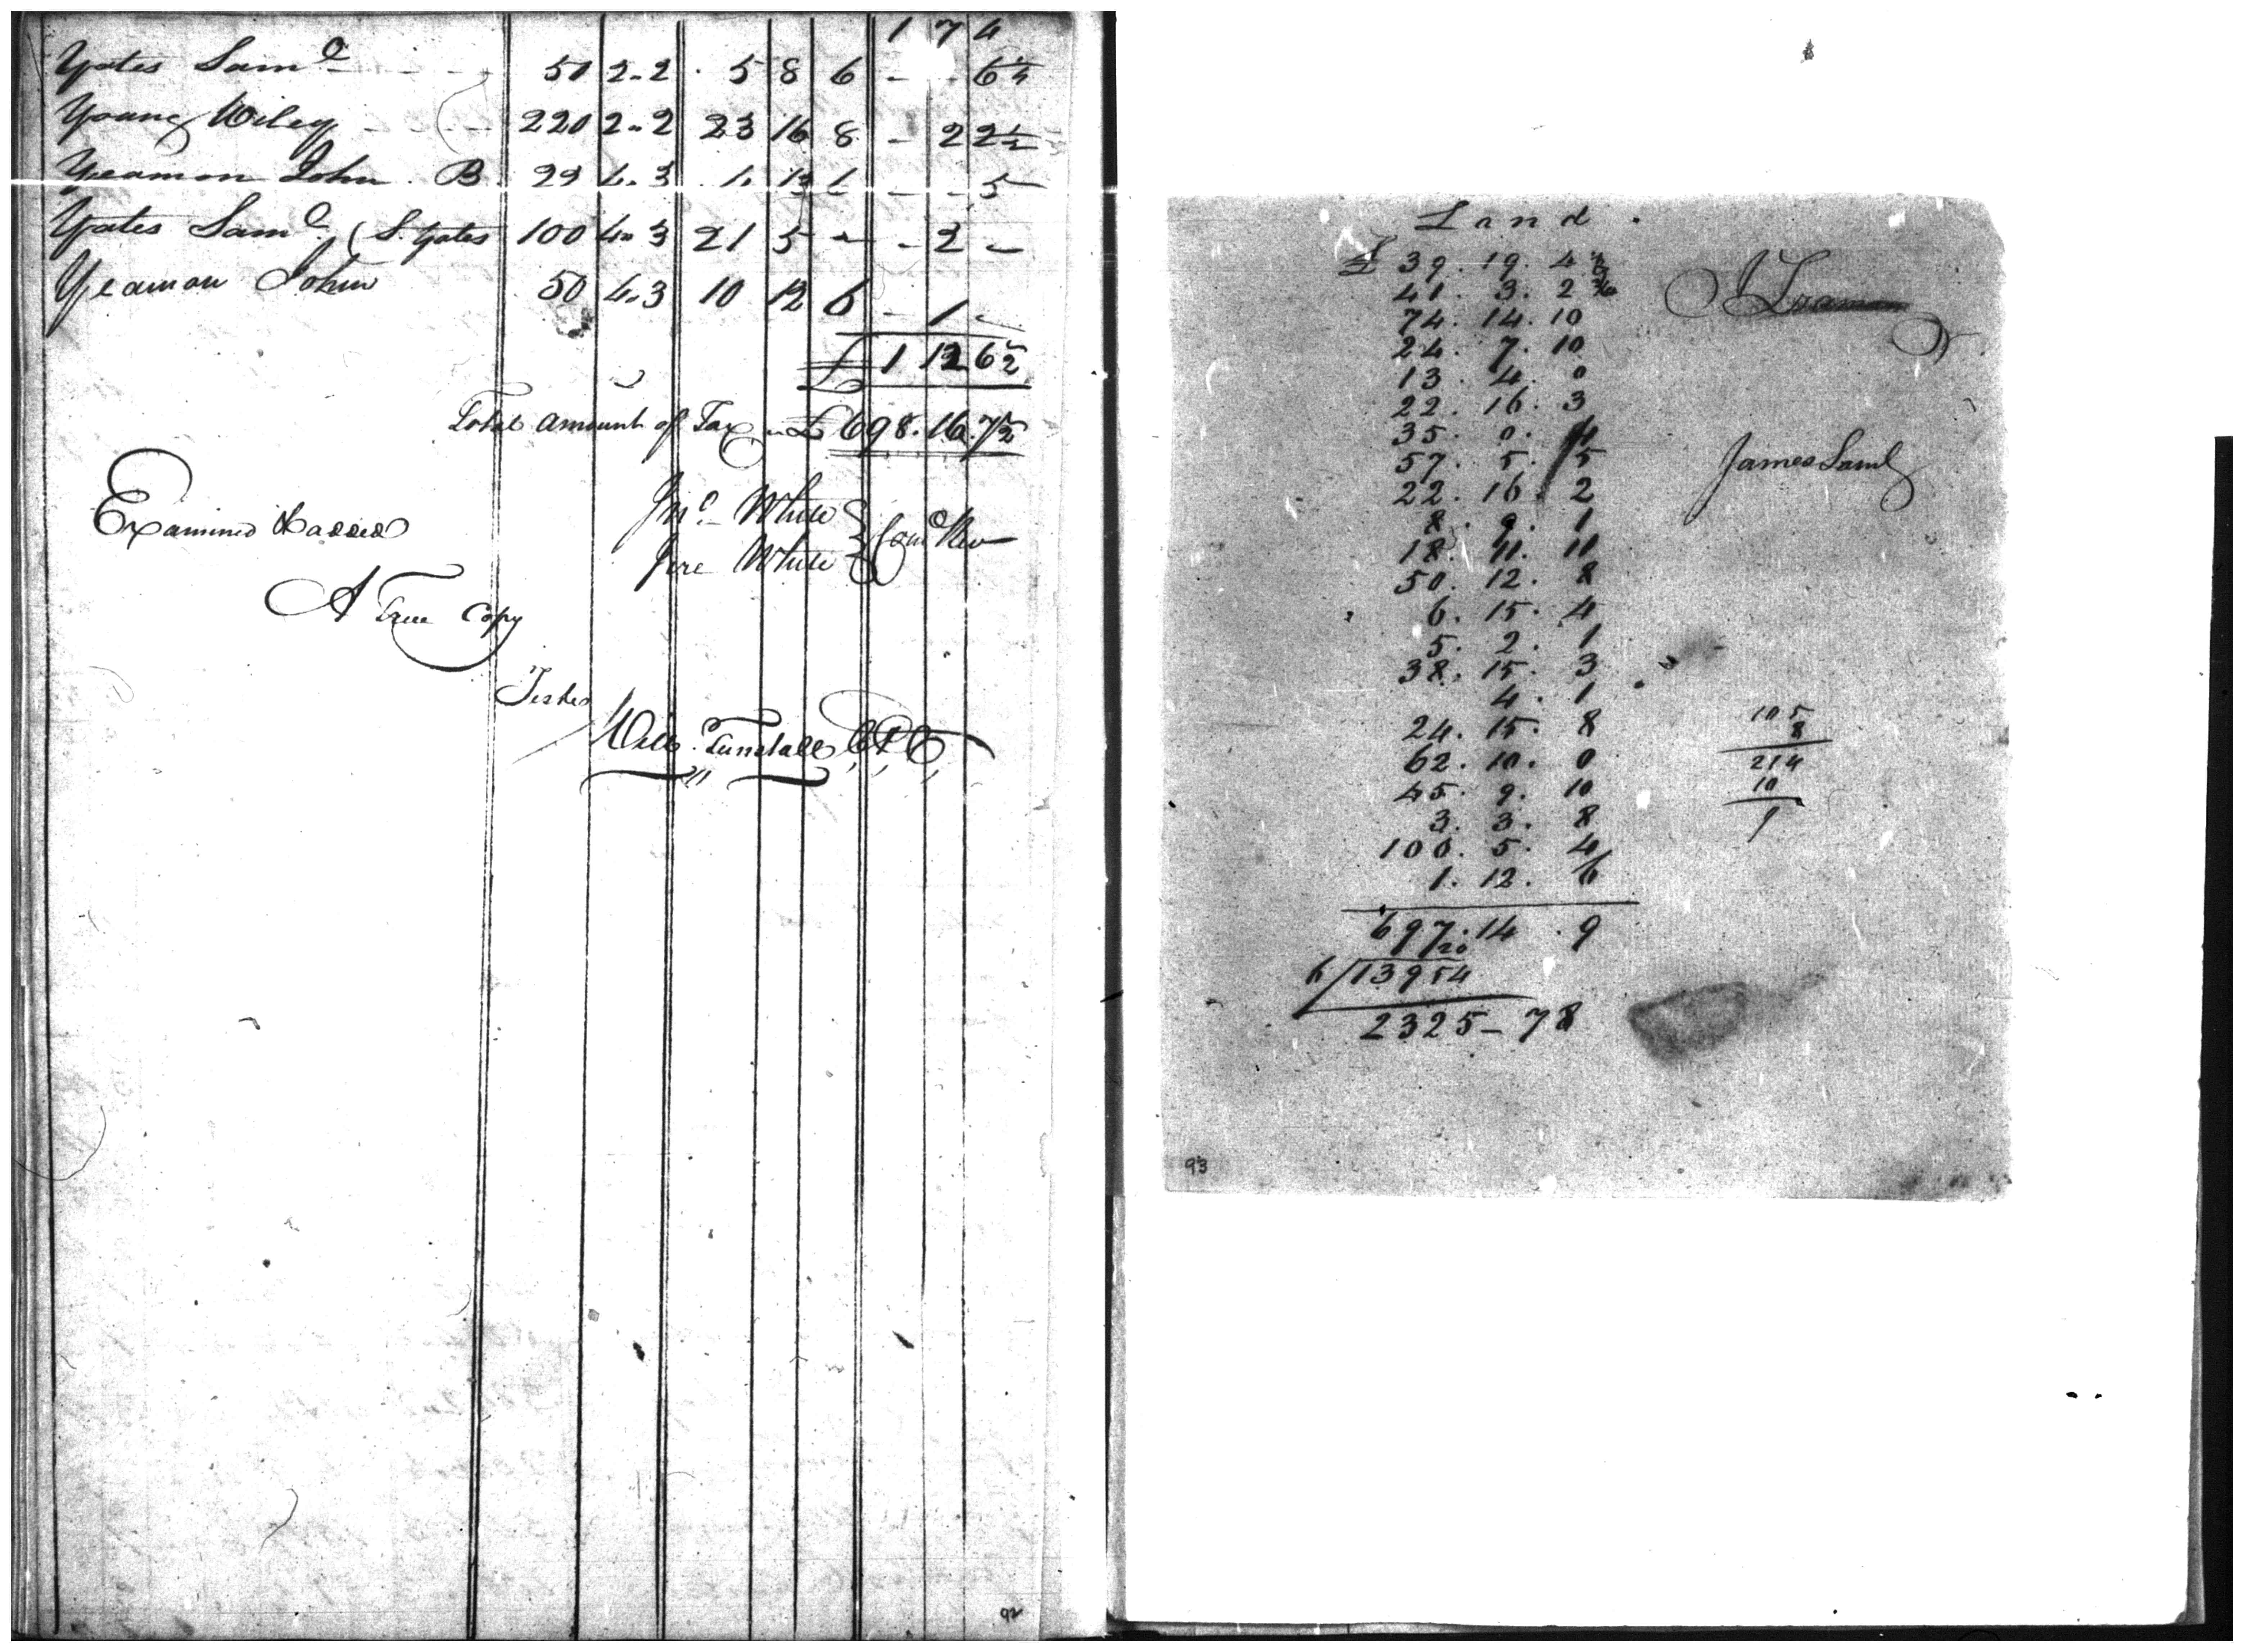 1 7 4
Yates Saml 50 2.2 5 8 6 - - 6½
Young Wiley 220 2.2 23 16 8 - 2 2½
Yeamon John B 29 4.3 - - 5
Yates Saml (S. Yates 100 4.3 21 5 - - 2 -
Yeamon John 50 4.3 10 12 6 - 1 -
£ 1 12 6½
Total amount of Tax £698.16.7½
Jno White
Examined &
Jere White } Com Rev
A True Copy
Teste
Will Tunstall
92
Land
£ 39. 19. 4
41. 3. 2
74. 14. 10
24. 7. 10
13. 4. 0
22. 16. 3
35. 0.
57. 5. 5
James Saml
22. 16. 2
8. 9. 1
18. 11. 11
50. 12. 8
6. 15. 4
5. 2. 1
38. 15. 3
4. 1
24. 15. 8
62. 10. 0
45. 9. 10
3. 3. 8
100. 5. 4
1. 12. 6
697. 14. 9
20
6/13954
2325-78
105
8
214
10
93